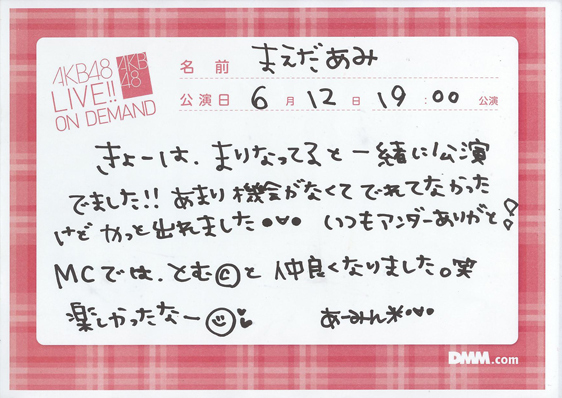 AKB48
LIVE!!
ON DEMAND
AKB
48
名前 まえだあみ
公演日 6月12日 19:00 公演
きょーは、まりなってると一緒に公演
でました!! あまり機会がなくてでれてなかった
けどやっと出れました いつもアンダーありがと!
MCでは、とむⓒと仲良くなりました。笑
楽しかったなー あーみん*
DMM.com